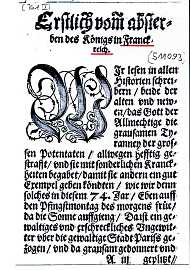 (Teil II)
Erstlich vom abster-
ben des Königs in Franck-
reich.
(511093)
Wir lesen in allen
Historien schrei-
bern / beide der
alten vnd new-
en / das Gott der
Allmechtige die
grausamen Tyran-
ney der gros-
sen Potentaten / allwegen hefftig ge-
strafft / vnd sie mit sonderlichen Kranck-
heiten begabet / damit sie andern ein gut
Exempel geben köndten / wie wir denn
solches in diesem 74. Jar / Eben auff
den Pfingstmontag des morgens früe /
da die Sonne auffgieng / Da ist ein ge-
waltiges vnd erschreckliches Vngewit-
ter vber die gewaltige Stadt Paryß ge-
zogen / vnd da grausam gedonnert vnd
A iij geplitzt /